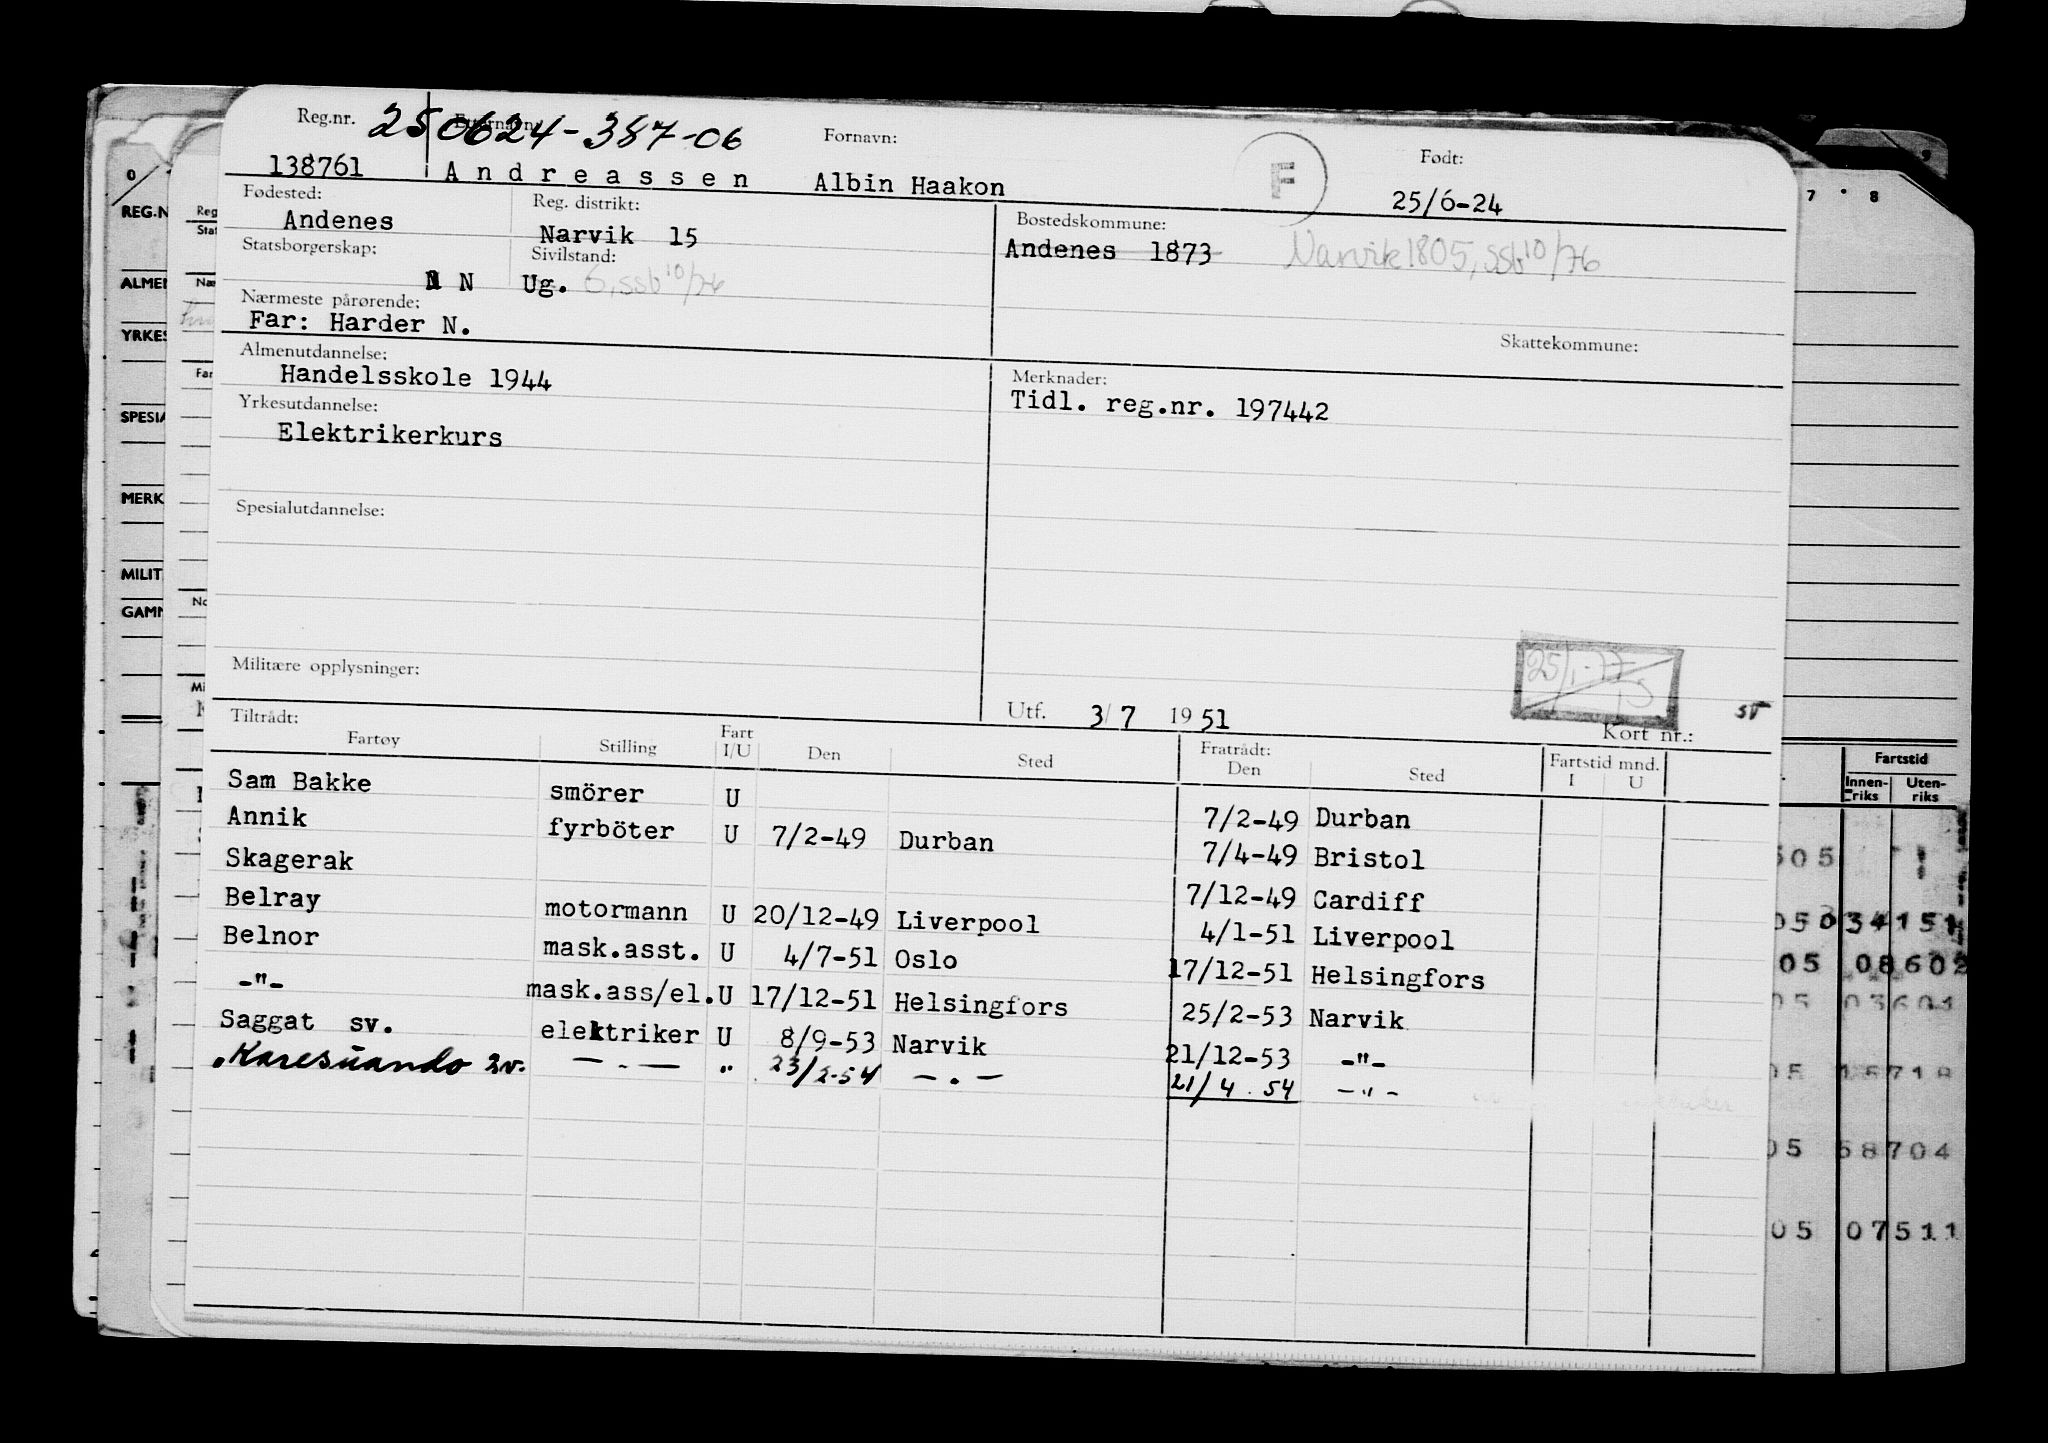 Reg.nr. 250624-387-06 Fornavn: Født:
138761 Andreassen Albin Haakon F 25/6-24
Fødested: Reg. distrikt: Bostedskommune:
Andenes Narvik 15 Andenes 1873 Narvik 1805, ssb 10/76
Statsborgerskap: Sivilstand:
N Ug. 6, ssb 10/76
Nærmeste pårørende:
Far: Harder N.
Skattekommune:
Almenutdannelse: Merknader:
Handelsskole 1944 Tidl. reg.nr. 197442
Yrkesutdannelse:
Elektrikerkurs
Spesialutdannelse:
Militære opplysninger:
25/1-77
Utf. 3/7 1951 Kort nr.:
Tiltrådt: Fratrådt:
Fartøy Stilling Fart I/U Den Sted Den Sted Fartstid mnd. I U
Sam Bakke smörer U 7/2-49 Durban
Annik fyrböter U 7/2-49 Durban 7/4-49 Bristol
Skagerak 7/12-49 Cardiff
Belray motormann U 20/12-49 Liverpool 4/1-51 Liverpool
Belnor mask.asst. U 4/7-51 Oslo 17/12-51 Helsingfors
-"- mask.ass/el. U 17/12-51 Helsingfors 25/2-53 Narvik
Saggat sv. elektriker U 8/9-53 Narvik 21/12-53 -"-
Karesuando sv. — . — " 23/2-54 — . — 21/4.54 -"-
REG.N
ALMEN
YRKES
SPESIA
MERK
MILIT
GAMM
7 8
Fartstid
Innen-riks Uten-riks
505
05034151
05 08602
05 03601
05 18718
05 68704
05 07511